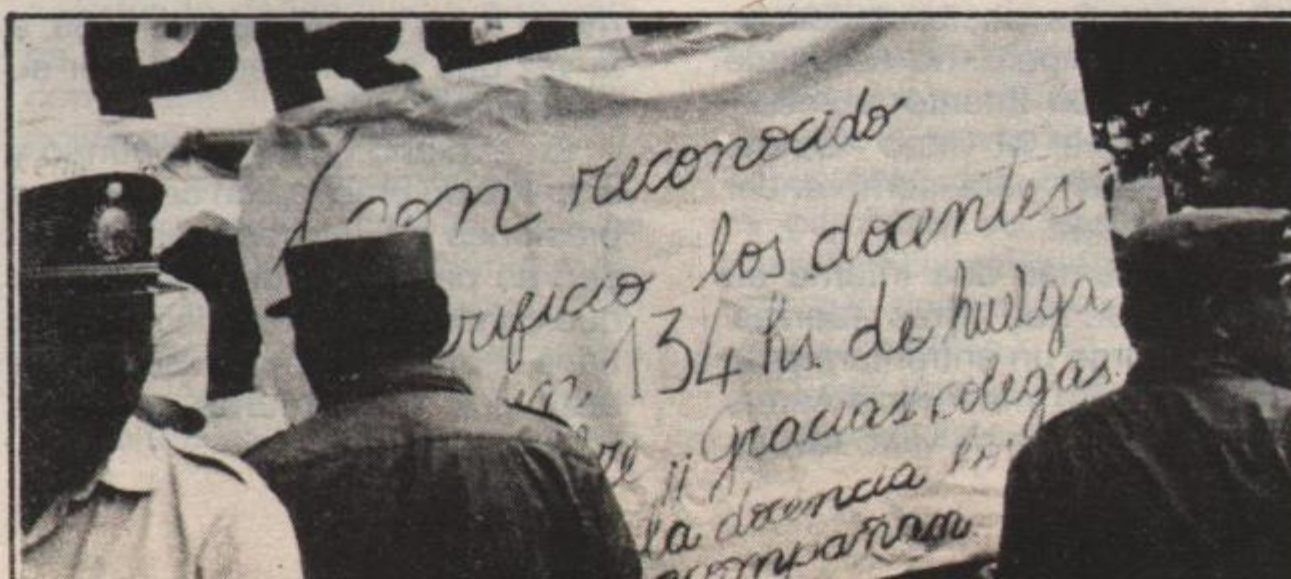 con reconocido
rificio los docentes
134 hs de hulga
re ¡¡ Gracias colegas
la docencia
acompañan